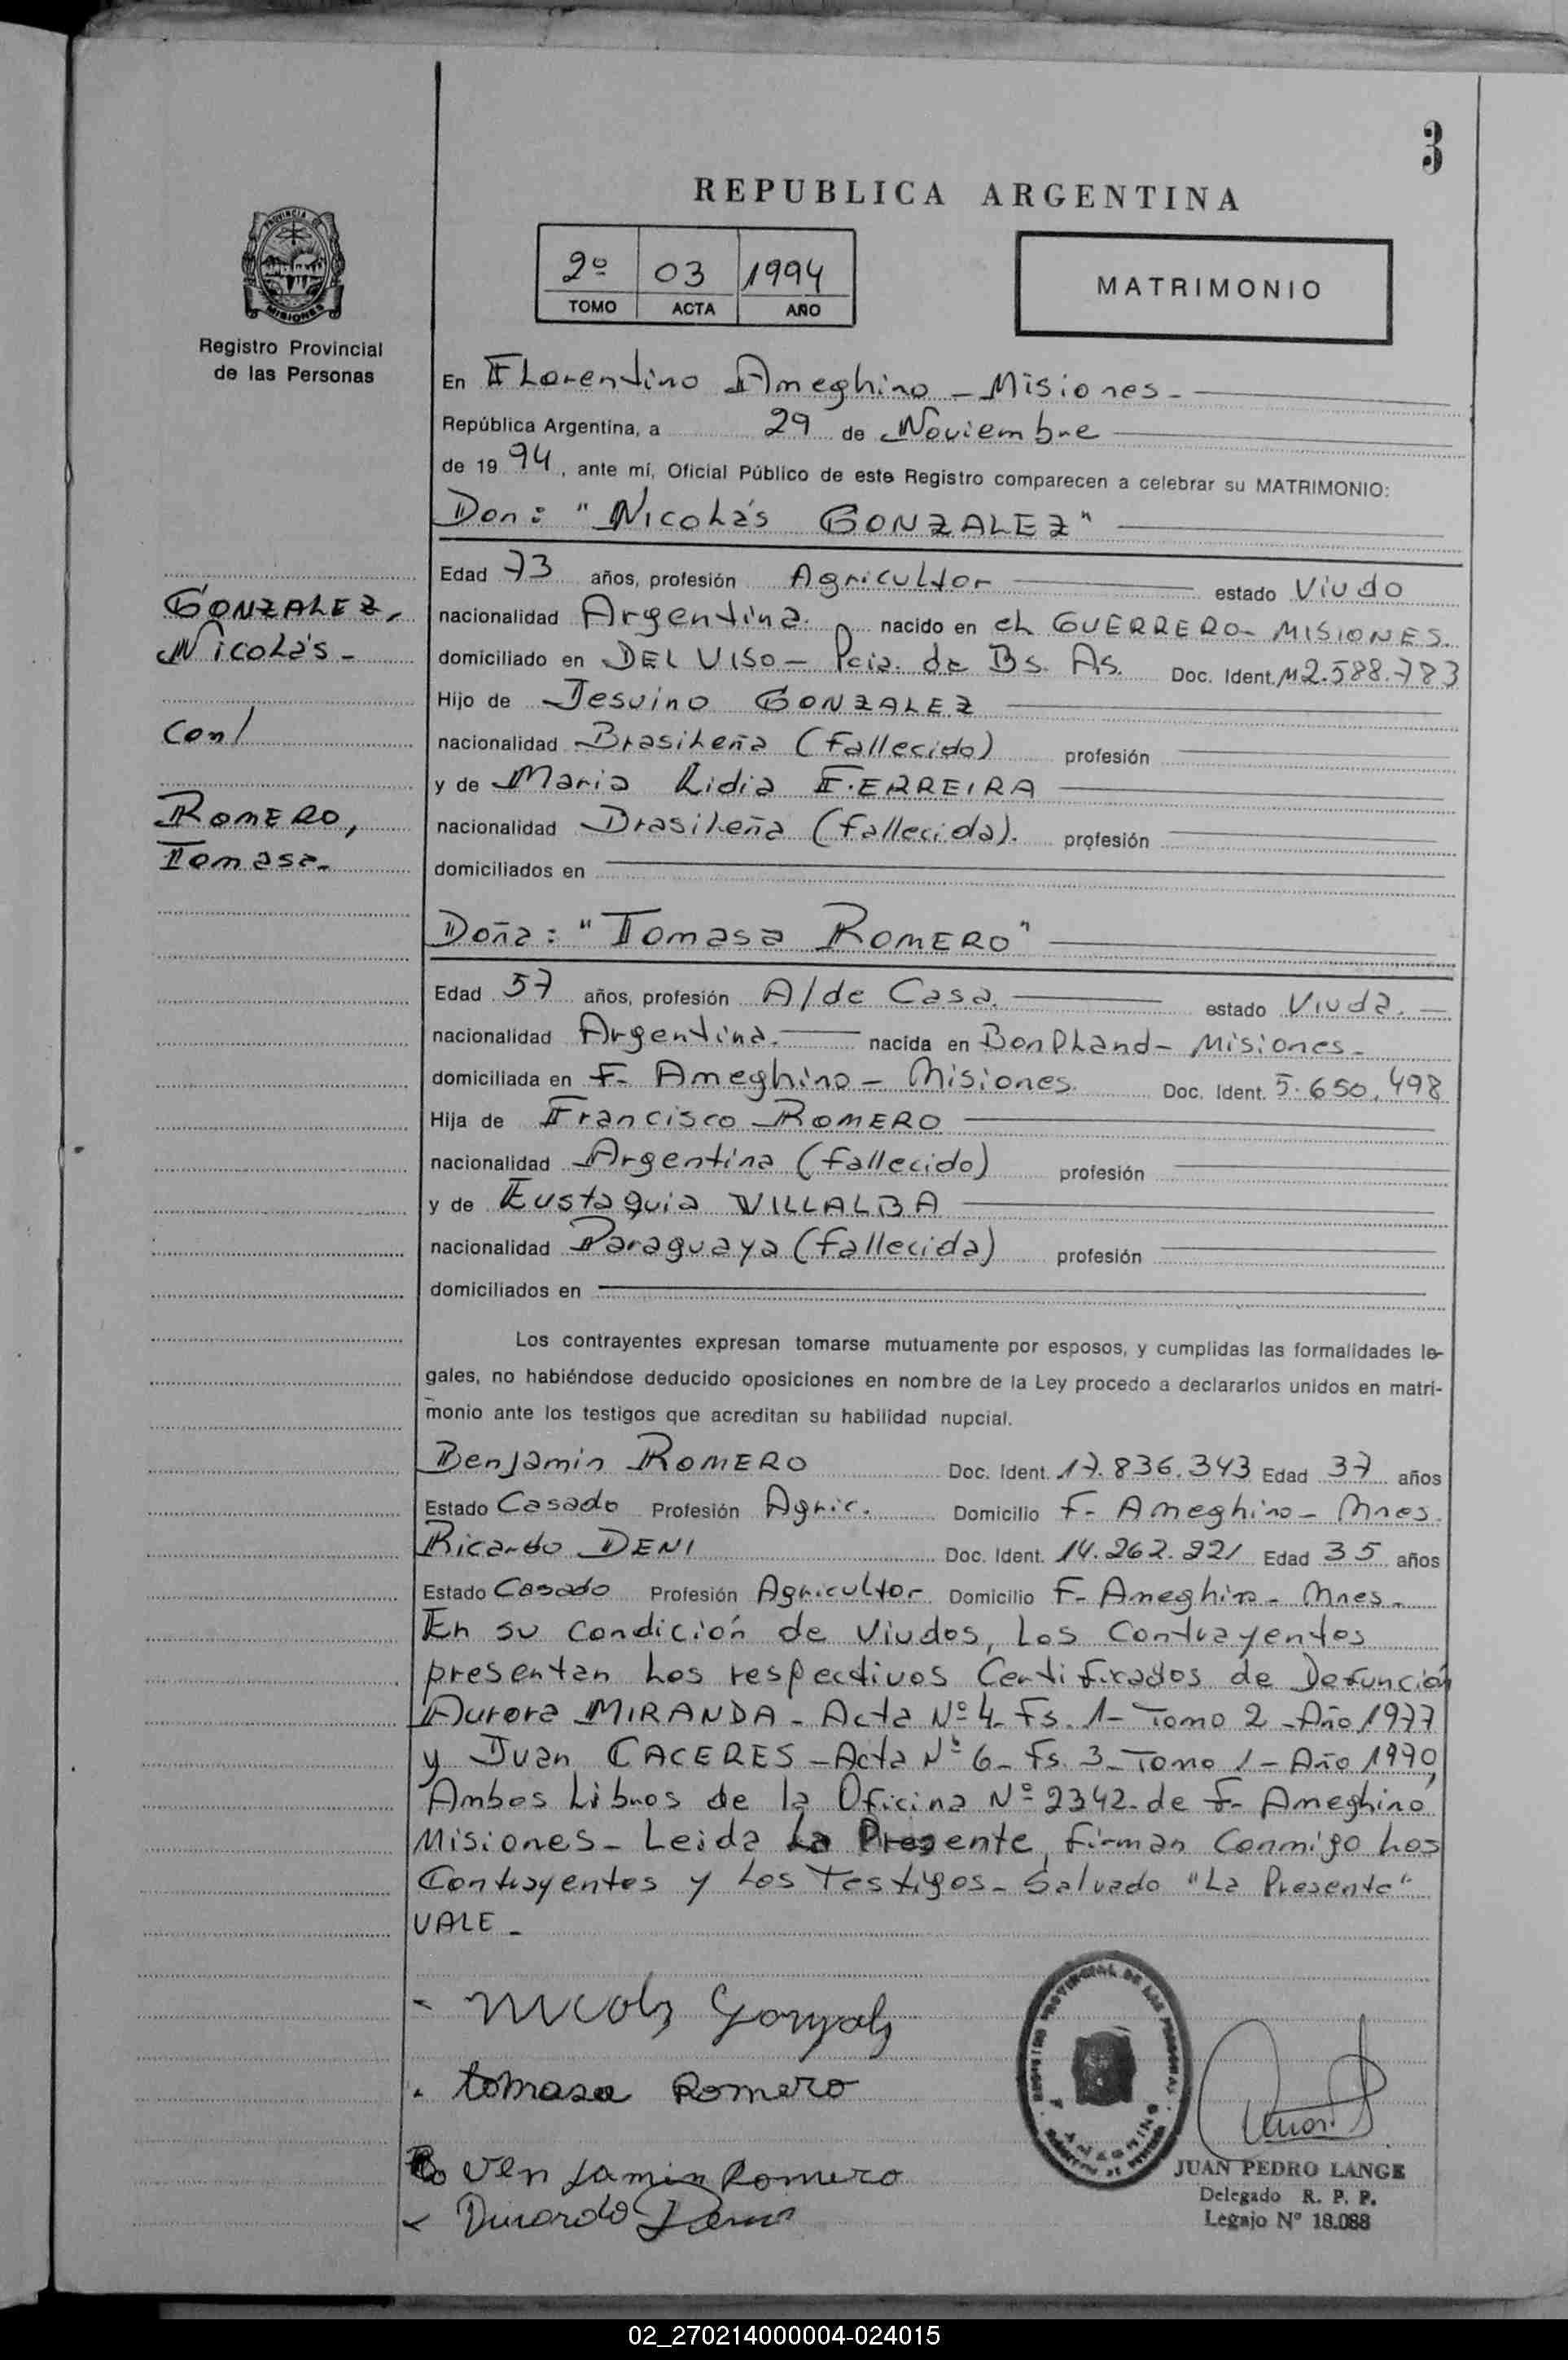 3
REPUBLICA ARGENTINA
2º 03 1994
TOMO ACTA AÑO
MATRIMONIO
PROVINCIA
MISIONES
Registro Provincial
de las Personas
En Florentino Ameghino - Misiones -
República Argentina, a 29 de Noviembre
de 19 94, ante mí, Oficial Público de este Registro comparecen a celebrar su MATRIMONIO:
Don: "Nicolás GONZALEZ"
Edad 73 años, profesión Agricultor estado Viudo
nacionalidad Argentina. nacido en el GUERRERO- MISIONES.
domiciliado en DEL VISO - Pcia. de Bs. As. Doc. Ident. M 2.588.783
Hijo de Jesuino GONZALEZ
nacionalidad Brasileña (fallecido) profesión
y de Maria Lidia FERREIRA
nacionalidad Brasileña (fallecida). profesión
domiciliados en
GONZALEZ,
Nicolás -
Con/
ROMERO,
Tomasa-
Doña: "Tomasa ROMERO"
Edad 57 años, profesión A/de Casa. estado Viuda. -
nacionalidad Argentina. nacida en BonPland- Misiones-
domiciliada en F- Ameghino - Misiones. Doc. Ident. 5.650.498
Hija de Francisco ROMERO
nacionalidad Argentina (fallecido) profesión
y de Eustaquia VILLALBA
nacionalidad Paraguaya (fallecida) profesión
domiciliados en
Los contrayentes expresan tomarse mutuamente por esposos, y cumplidas las formalidades le-
gales, no habiéndose deducido oposiciones en nombre de la Ley procedo a declararlos unidos en matri-
monio ante los testigos que acreditan su habilidad nupcial.
Benjamin ROMERO Doc. Ident. 17.836.343 Edad 37 años
Estado Casado Profesión Agric. Domicilio F- Ameghino - Mnes.
Ricardo DENI Doc. Ident. 14.262.221 Edad 35 años
Estado Casado Profesión Agricultor Domicilio F- Ameghino - Mnes-
En su condición de Viudos, Los Contrayentes
presentan Los respectivos Certificados de Defunción
Aurora MIRANDA - Acta Nº 4- Fs. 1- Tomo 2 - Año 1977
y Juan CACERES - Acta Nº 6- Fs. 3- Tomo 1 - Año 1970,
Ambos Libros de la Oficina Nº 2342- de F- Ameghino
Misiones - Leida La Presente, firman Conmigo Los
Contrayentes y Los Testigos - Salvado "La Presente"
VALE -
Nicolas Gonzalez
tomasa Romero
Venjamin Romero
JUAN PEDRO LANGE
Delegado R. P. P.
Legajo Nº 18.088
02_270214000004-024015